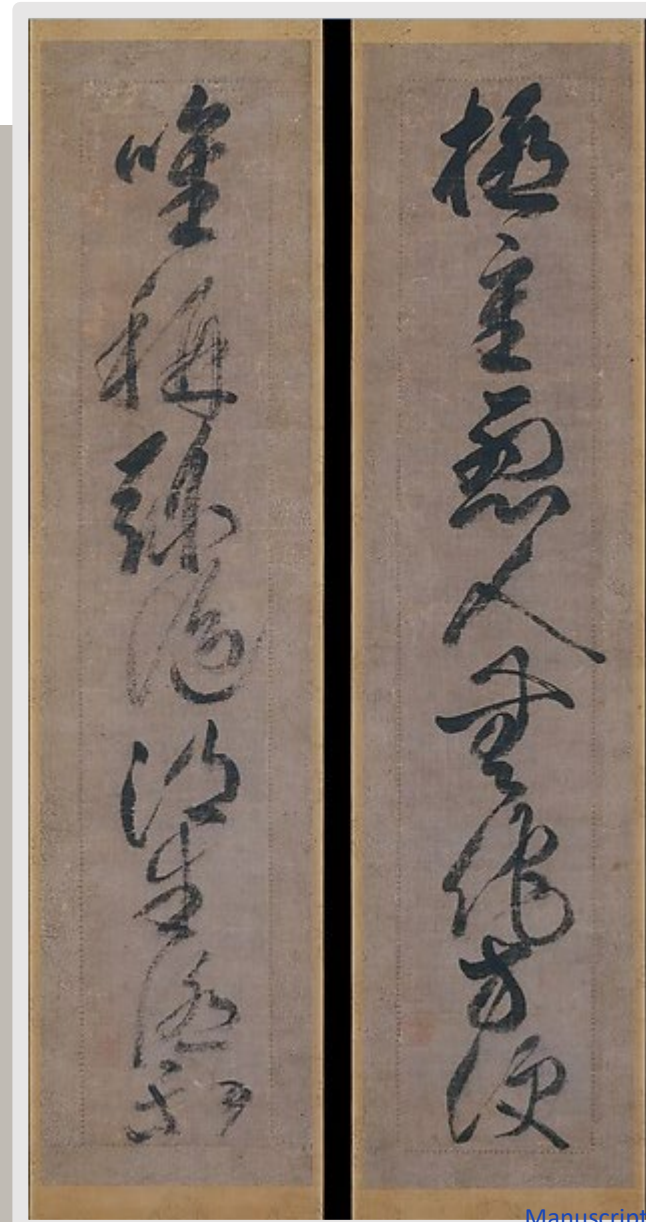 極重悪人無他方便
唯称弥陀得生極楽
Manuscript